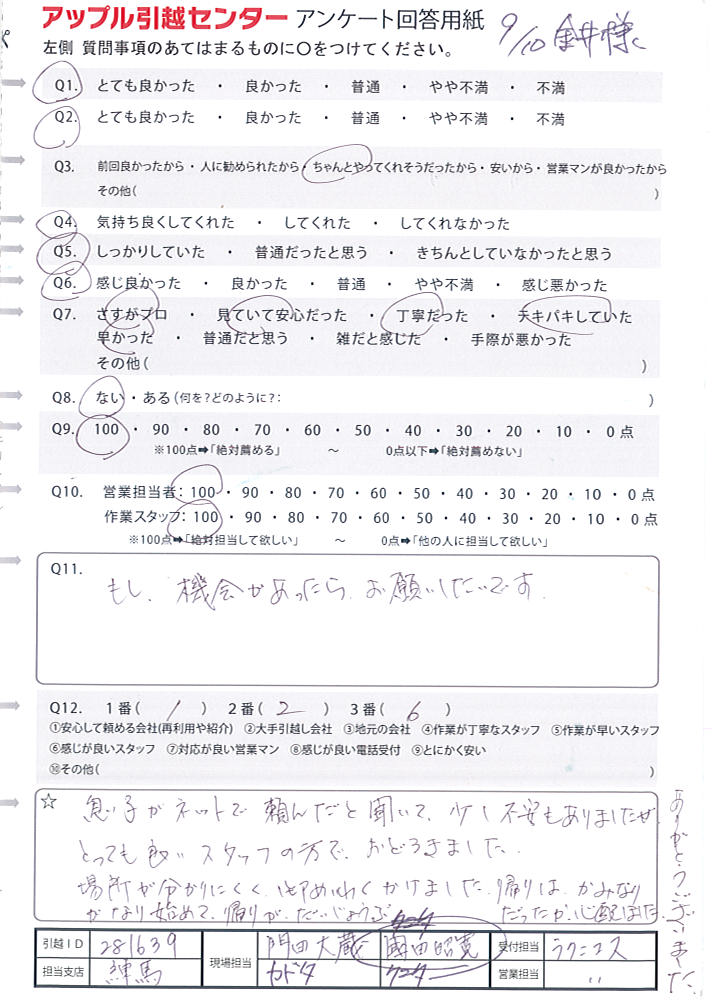 アップル引越センター アンケート回答用紙 9/10 金井様
左側 質問事項のあてはまるものに〇をつけてください。
Q1. とても良かった ・ 良かった ・ 普通 ・ やや不満 ・ 不満
Q2. とても良かった ・ 良かった ・ 普通 ・ やや不満 ・ 不満
Q3. 前回良かったから・人に勧められたから・ちゃんとやってくれそうだったから・安いから・営業マンが良かったから
その他( )
Q4. 気持ち良くしてくれた ・ してくれた ・ してくれなかった
Q5. しっかりしていた ・ 普通だったと思う ・ きちんとしていなかったと思う
Q6. 感じ良かった ・ 良かった ・ 普通 ・ やや不満 ・ 感じ悪かった
Q7. さすがプロ ・ 見ていて安心だった ・ 丁寧だった ・ テキパキしていた
早かった ・ 普通だと思う ・ 雑だと感じた ・ 手際が悪かった
その他( )
Q8. ない・ある(何を?どのように?: )
Q9. 100 ・ 90 ・ 80 ・ 70 ・ 60 ・ 50 ・ 40 ・ 30 ・ 20 ・ 10 ・ 0 点
※100点➡「絶対薦める」 ～ 0点以下➡「絶対薦めない」
Q10. 営業担当者: 100 ・ 90 ・ 80 ・ 70 ・ 60 ・ 50 ・ 40 ・ 30 ・ 20 ・ 10 ・ 0 点
作業スタッフ: 100 ・ 90 ・ 80 ・ 70 ・ 60 ・ 50 ・ 40 ・ 30 ・ 20 ・ 10 ・ 0 点
※100点➡「絶対担当して欲しい」 ～ 0点➡「他の人に担当して欲しい」
Q11.
もし、機会があったら、お願いしたいです.
Q12. 1番( 1 ) 2番( 2 ) 3番( 6 )
①安心して頼める会社(再利用や紹介) ②大手引越し会社 ③地元の会社 ④作業が丁寧なスタッフ ⑤作業が早いスタッフ
⑥感じが良いスタッフ ⑦対応が良い営業マン ⑧感じが良い電話受付 ⑨とにかく安い
⑩その他( )
☆ 息子がネットで頼んだと聞いて、少し不安もありましたが、
とっても良いスタッフの方で、おどろきました.
場所が分かりにくく、ごめいわくかけました.帰りは、かみなり
がなり始めて、帰りが、だいじょうぶだったか、心配しました.
ありがとうございました.
引越ID 281639 現場担当 門田大蔵 國田昭寛 受付担当 ラクニコス
担当支店 練馬 カドタ クニタ 営業担当 〃